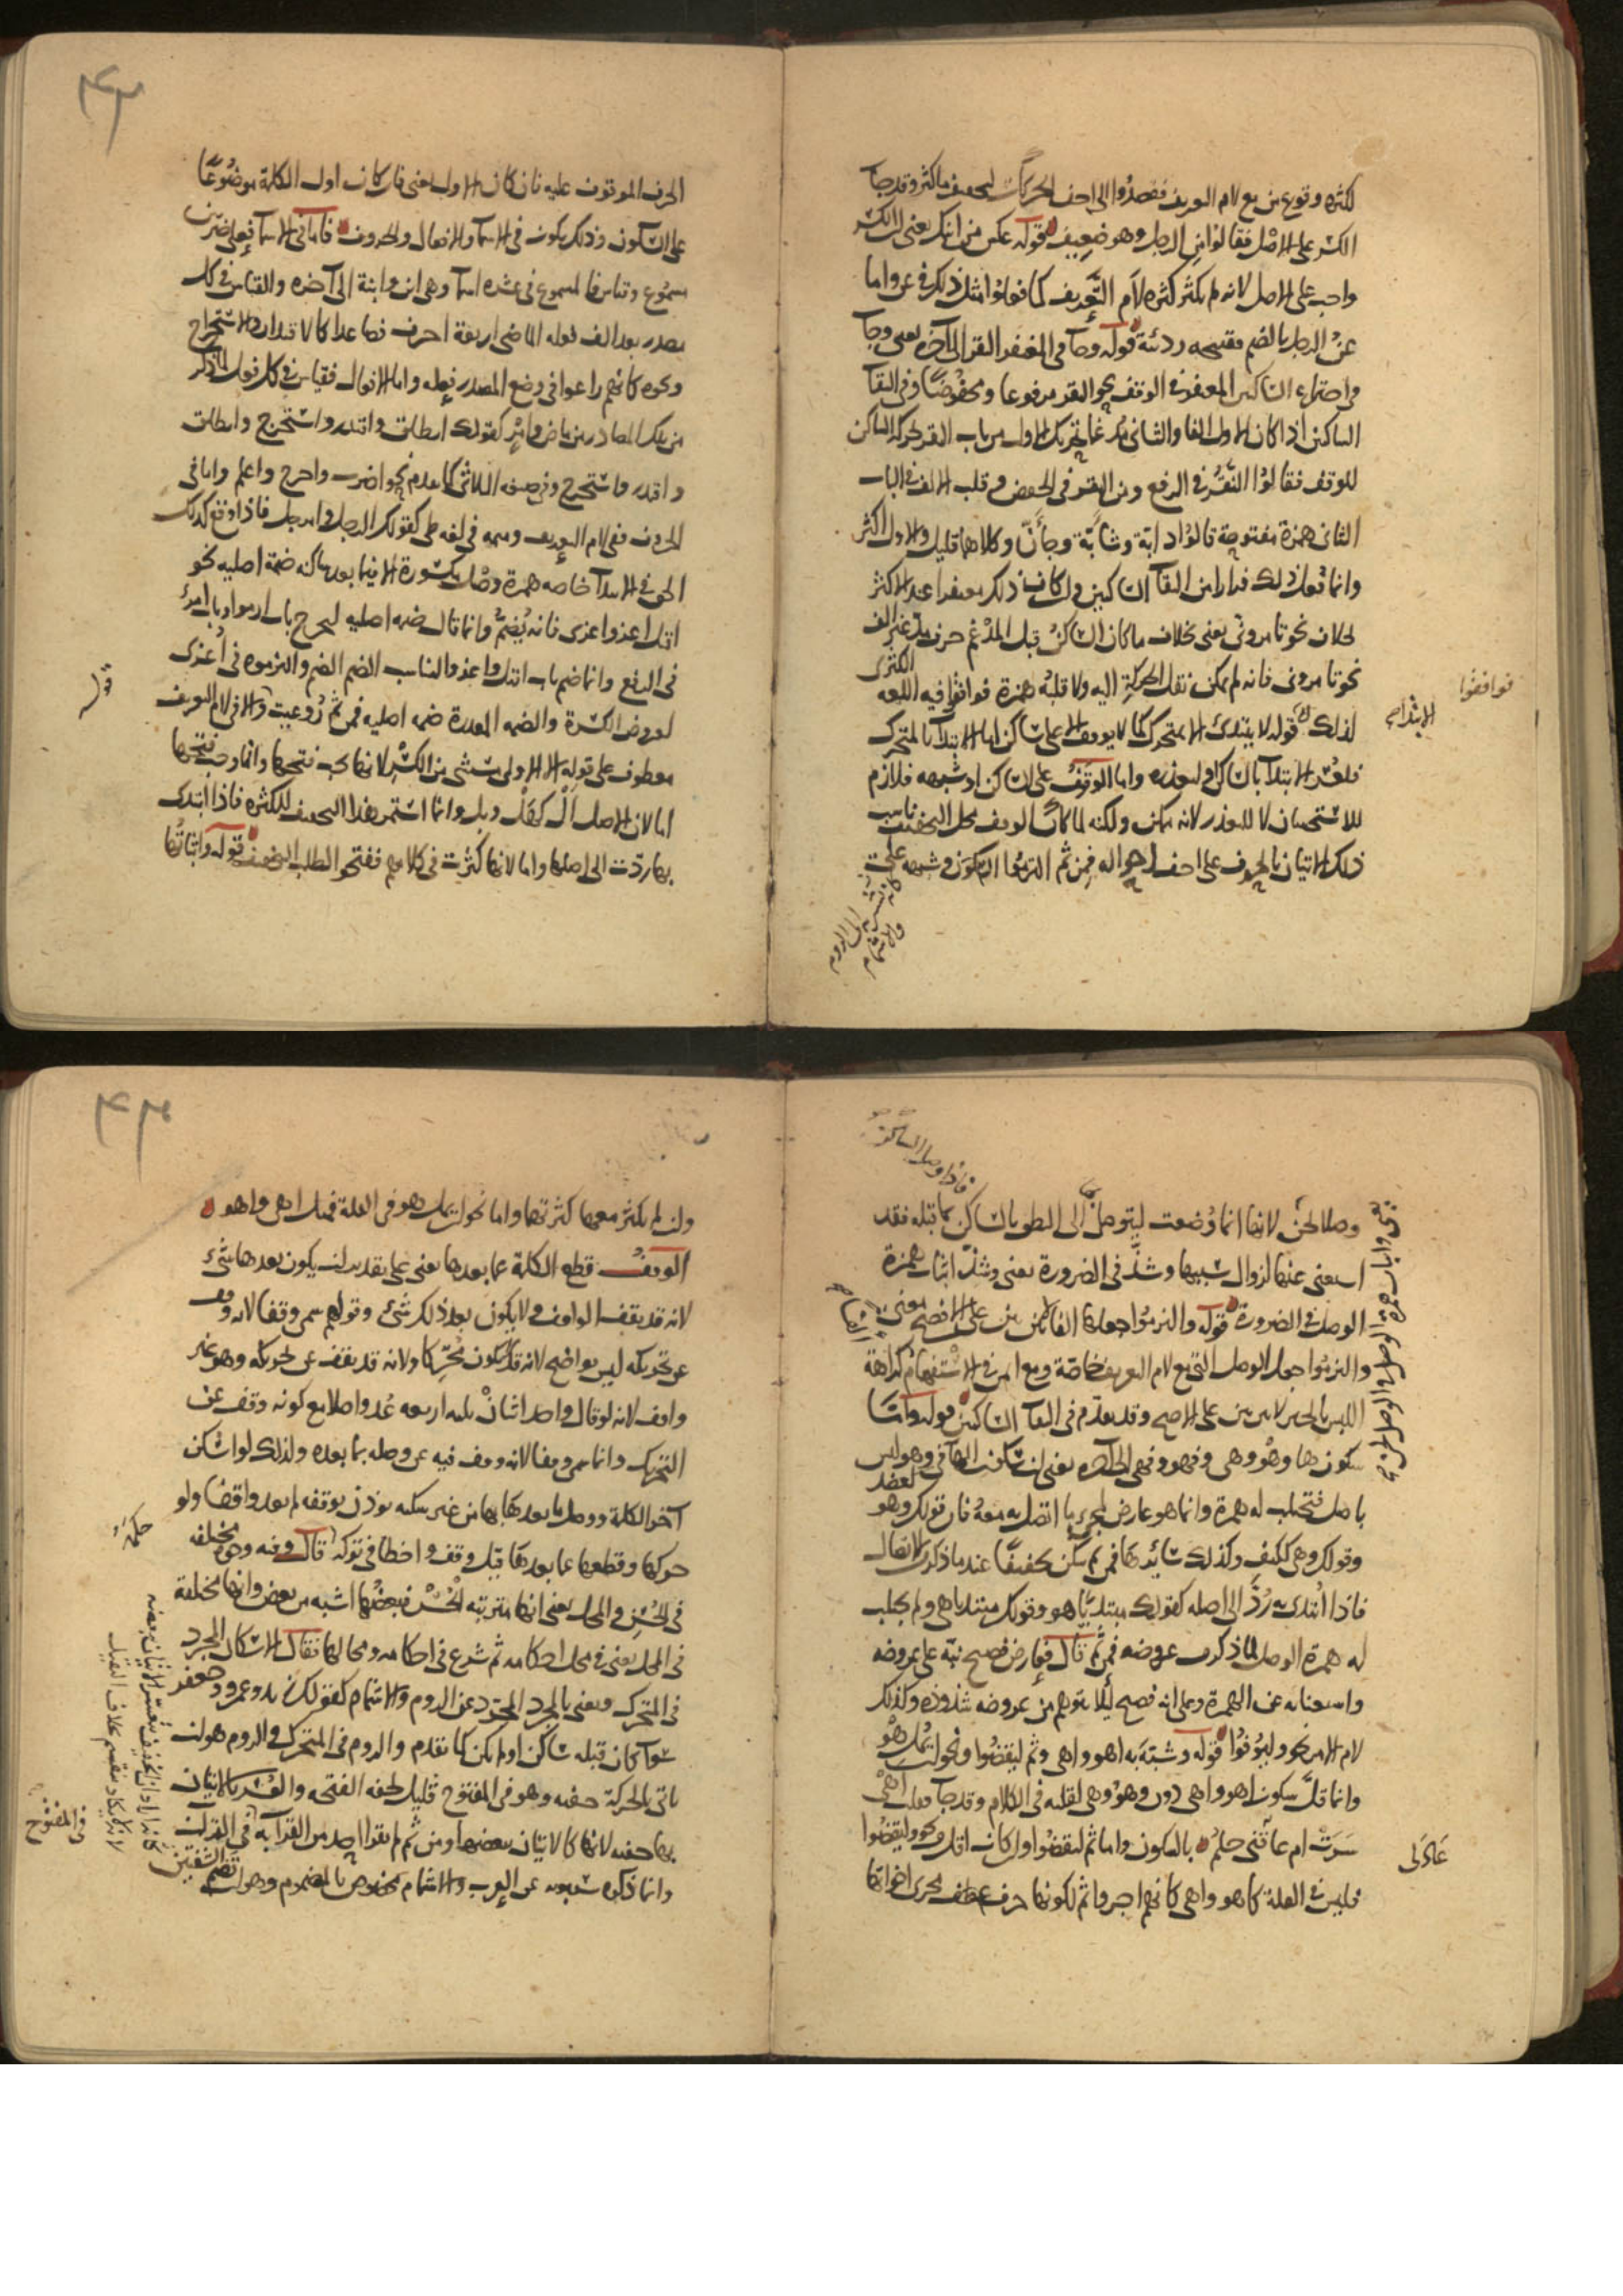 لكثرة وقوع من مع لام التعريف فقصدوا الى اخف الحركات لتخفيف ما كثر وقد جا
الكسر على الاصل فقالوا من الرجل وهو ضعيف قوله عكس من ابنك يعنى ان الكسر
واجب على الاصل لانه لم يكثر كثرة لام التعريف كما فعلوا مثل ذلك فى عن واما
عن الرجل بالضم فقبيحه رديئة قوله وجا فى المغتفر النقر الى آخره يعنى وجا
فى اجتماع الساكنين المغتفر فى الوقف نحو النقر مرفوعا ومخفوضا وفى التقا
الساكنين اذا كان الاول الفا والثانى مدغما تحريك الاول من باب النقر لحركة الساكن
للوقف فقالوا النقر فى الرفع ومن النقر فى الخفض وقلب الالف فى الباب
الثانى همزة مفتوحة قالوا دابة وشابة وجان وكلاهما قليل والاول اكثر
وانما فعل ذلك فرارا من التقا الساكنين وان كان ذلك مغتفرا عند الاكثر
بخلاف نحو تامرونى يعنى بخلاف ما كان الساكن قبل المدغم حرف مد غير الف
نحو تامرونى فانه لم يمكن نقل الحركة اليه ولا قلبه همزة فوافقوا فيه اللغة الكثرى
لذلك قوله لا يبتدئ الا بمتحرك كما لا يوقف الا على ساكن اما الابتدا بالمتحرك
فلتعذر الابتدا بالساكن او لتعذره واما الوقف على الساكن او شبهه فلازم
للاستحسان لا للتعذر لانه ممكن ولكنه لما كان الوقف محل التخفيف ناسب
ذلك الاتيان بالحروف على اخف احواله فمن ثم التزموا السكون وشبهه على
فوافقوا
الابتداء
الحرف الموقوف عليه فان كان الاول يعنى فان كان اول الكلمة موضوعا
على السكون وذلك يكون فى الاسما والافعال والحروف فاما فى الاسما فعلى ضربين
مسموع وقياس فالمسموع فى عشرة اسما وهى ابن وابنة الى آخره والقياس فى كل
مصدر بعد الف فعله الماضى اربعة احرف فصاعدا كالاقتدار والاستخراج
ونحوه كانهم راعوا فى وضع المصدر فعله واما الافعال فقياس فى كل فعل
من تلك المصادر من ماض وامر كقولك انطلق واقتدر واستخرج وانطلق
واقتدر واستخرج وفى صيغة الثلاثى كما تقدم نحو اضرب واخرج واعلم واما فى
الحروف ففى لام التعريف وميمه فى لغة طى كقولك الرجل وامرجل فاذا وقع كذلك
الحق فى الابتدا خاصة همزة وصل مكسورة الا فيما بعد ساكنه ضمة اصلية نحو
اقتل اغز اغزى فانه يضم وانما قال ضمة اصلية ليخرج باب ارموا وباب امرؤ
فى الرفع وانما ضم باب اقتل واغز والناسب الضم الضم والتزموه فى اغزى
لعروض الكسرة والضمة المقدرة ضمة اصلية فمن ثم روعيت والا فى لام التعريف
معطوف على قوله الا الاولى مستثنى من الكسر لانها يجب فتحها وانما وجب فتحها
اما لان الاصل ال كهل وبل وانما استمر هذا التخفيف للكثرة فاذا ابتدئ
بها ردت الى اصلها واما لانها كثرت فى كلامهم ففتحو الطلب التخفيف قوله واثباتها
وصلا لحن لانها انما وضعت ليتوصل الى النطق بالساكن ما قبله فقد
استغنى عنها لزوال سببها وشذ فى الضرورة يعنى وشذ اثبات همزة
الوصل فى الضرورة قوله والتزموا جعلها الفا لابين بين على الافصح يعنى
والتزموا جعل الوصل التى مع لام التعريف خاصة ومع ايمن فى الاستفهام كراهة
اللبس بالخبر لابين بين على الاصح وقد تقدم فى التقا الساكنين قوله واما
سكون ها وهو وهى وفهو وفهى الى آخره يعنى ان سكون الها فى وهو ليس
باصل فتجلب له همزة وانما هو عارض لجرى ما اتصل به معه فان قولك وهو كعضد
وقولك وهى ككتف وكذلك سائرها فمن ثم سكن تخفيفا عند ما ذكر لاتصال
فاذا ابتدئ به رد الى اصله كقولك مبتديا هو وقولك مبتديا هى ولم يجلب
له همزة الوصل لما ذكر من عروضه فمن ثم قال فعارض فصيح نبه على عروضه
واستغنايه عن الهمزة وعلى انه فصيح لئلا يتوهم من عروضه شذوذه وكذلك
لام الامر نحو وليوفوا قوله وشبه به اهو واهى وثم ليقضوا ونحو ان يمل هو
وانما قل سكون اهو واهى دون وهو وهى لقلته فى الكلام وقد جا فقلت اهى
سرت ام عادنى حلم بالسكون واما ثم ليقضوا وان كان اقل من نحو وليقضوا
فليس فى العلة كاهو واهى كانهم اجروا ثم لكونها حرف عطف مجرى اخواتها
وان لم يكثر معها كثرتها واما نحو ان يمل هو فى العلة فمثل اهى واهو
الوقف قطع الكلمة عما بعدها يعنى على تقدير ان يكون بعدها شئ
لانه قد يقف الواقف ولا يكون بعد ذلك شئ وقولهم سمى وقفا لانه وقف
عن تحريكه ليس بواضح لانه قد يكون محركا ولانه قد يقف عن تحريكه وهو غير
واقف لانه لو قال واحد اثنان ثلثه اربعه عد واصلا مع كونه وقف عن
التحريك وانما سمى وقفا لانه وقف فيه عن وصله بما بعده ولذلك لو اسكن
آخر الكلمة ووصل ما بعدها بها من غير سكتة يوذن بوقفه لم يعد واقفا ولو
حركها وقطعها عما بعدها قيل وقف واخطا فى تركه قال وفيه وجوه مختلفة
فى الحسن والمحل يعنى انها مترتبة الحسن فبعضها اشبه من بعض وانها مختلفة
فى المحل يعنى فى محل احكامه ثم شرع فى احكامه ومحالها فقال الاسكان المجرد
فى المتحرك ويعنى بالمجرد المجرد عن الروم والاشمام كقولك زيد وعمرو وجعفر
سوا كان قبله ساكن او لم يكن كما تقدم والروم فى المتحرك والروم هو ان
ياتى بالحركة خفيه وهو فى المفتوح قليل لخفه الفتحه والعسر بالاتيان
بها خفيه لانها كالاتيان ببعضها ومن ثم لم يقرا احد من القرا به فى القران
وانما ذكره سيبويه عن العرب والاشمام مخصوص بالمضموم وهو ان تضم الشفتين
فى المفتوح